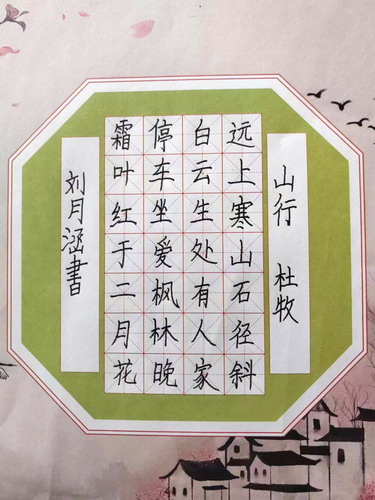 山行 杜牧
远上寒山石径斜
白云生处有人家
停车坐爱枫林晚
霜叶红于二月花
刘月涵書